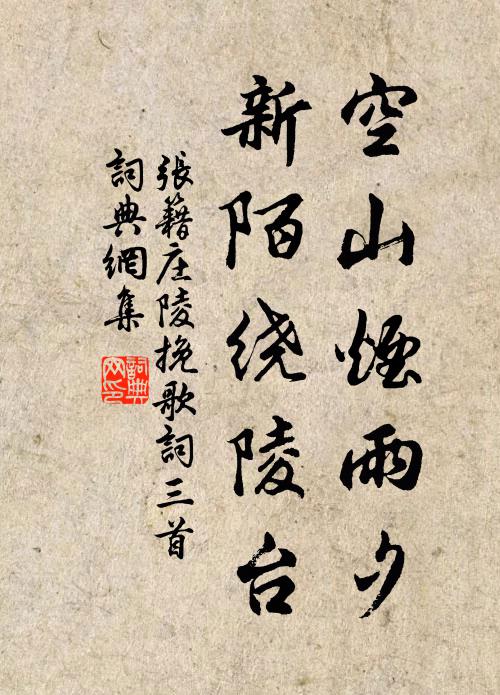 空山煙雨夕
新陌绕陵台
張籍庄陵挽歌詞三首
詞典網集
詞典
网印